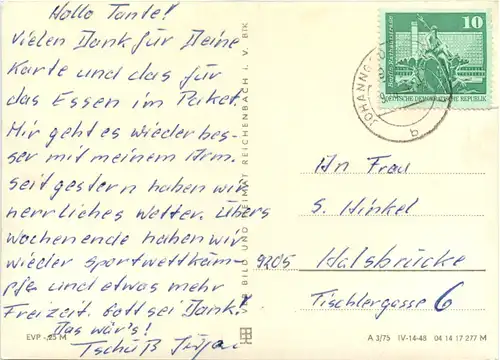 Hallo Tante!
Vielen Dank für Deine
Karte und das für
das Essen im Paket.
Mir geht es wieder bes-
ser mit meinem Arm.
Seit gestern haben wir
herrliches Wetter. Übers
Wochenende haben wir
wieder Sportwettkäm-
pfe und etwas mehr
Freizeit. Gott sei Dank!
Das wär's!
Tschüß
EVP -,25 M
BILD UND HEIMAT REICHENBACH i. V.
10
DEUTSCHE DEMOKRATISCHE REPUBLIK
JOHANNG
b
An Frau
S. Hinkel
9205 Halsbrücke
Tischlergasse 6
A 3/75 IV-14-48 04 14 17 277 M